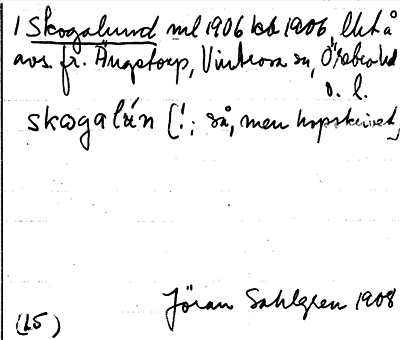 1 Skogalund ml 1906 kb 1906, lht å
avs. fr. Ängstorp, Vintrosa sn, Örebro hd
skogalún [!; så, men hopskrivet
Jöran Sahlgren 1908
(15)